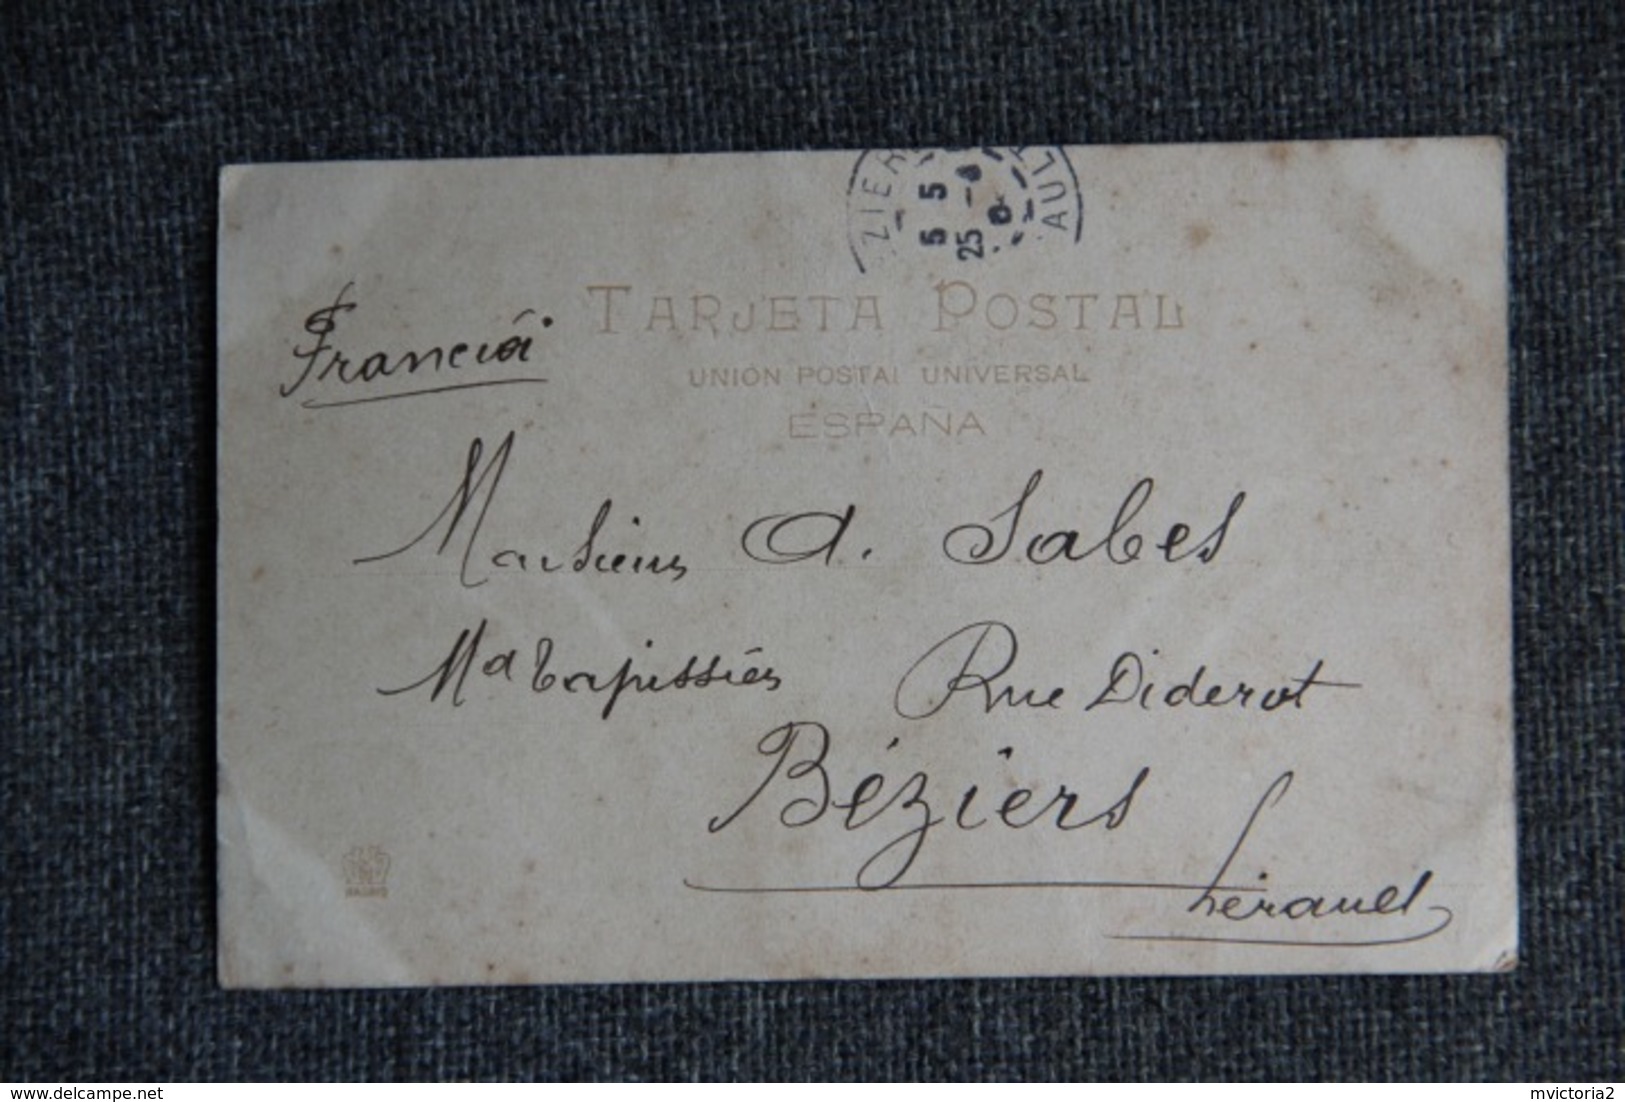 ZIER AULT
5 5
25 - 8
Francia
TARJETA POSTAL
UNIÓN POSTAL UNIVERSAL
ESPAÑA
Monsieur A. Sabes
Md Tapissier Rue Diderot
Béziers
Hérault
delcampe.net
mvictoria2